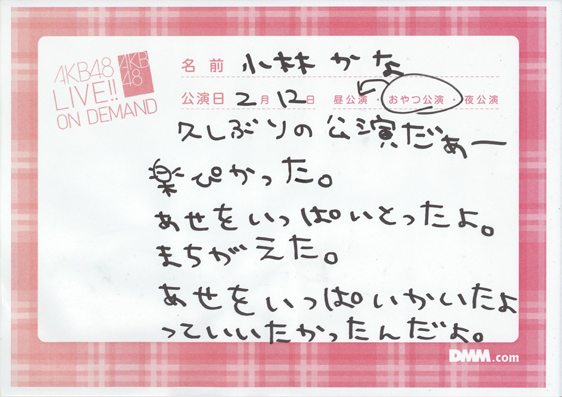 AKB48
LIVE!!
ON DEMAND
AKB
48
名前 小林かな
公演日 2月12日 昼公演・おやつ公演・夜公演
久しぶりの公演だぁー
楽ぴかった。
あせをいっぱいとったよ。
まちがえた。
あせをいっぱいかいたよ
っていいたかったんだよ。
DMM.com